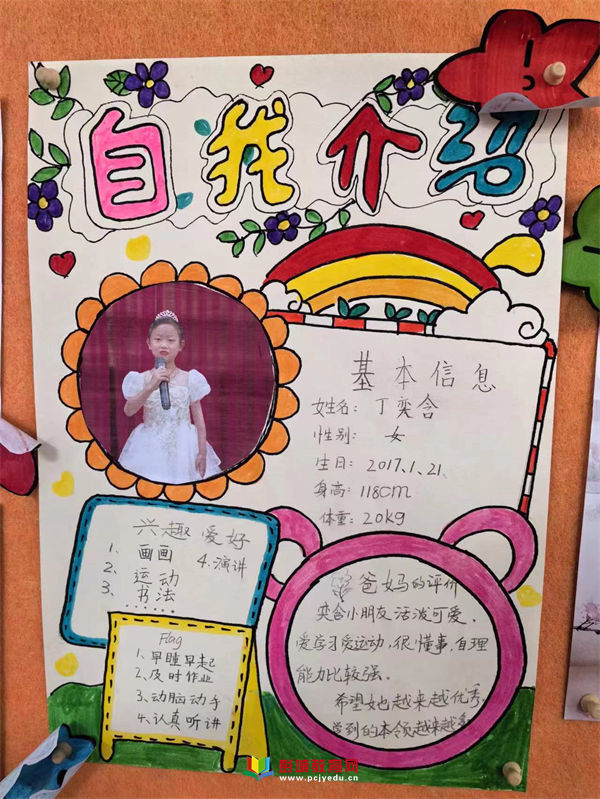 自我介绍
基本信息
女生名：丁奕含
性别：女
生日：2017.1.21.
身高：118cm
体重：20kg
兴趣爱好
1、画画 4.演讲
2、运动
3、书法
......
Flag
1、早睡早起
2、及时作业
3、动脑动手
4、认真听讲
爸妈的评价
奕含小朋友活泼可爱，
爱学习爱运动，很懂事，自理
能力比较强。
希望她越来越优秀，
学到的本领越来越多
www.pcjyedu.cn